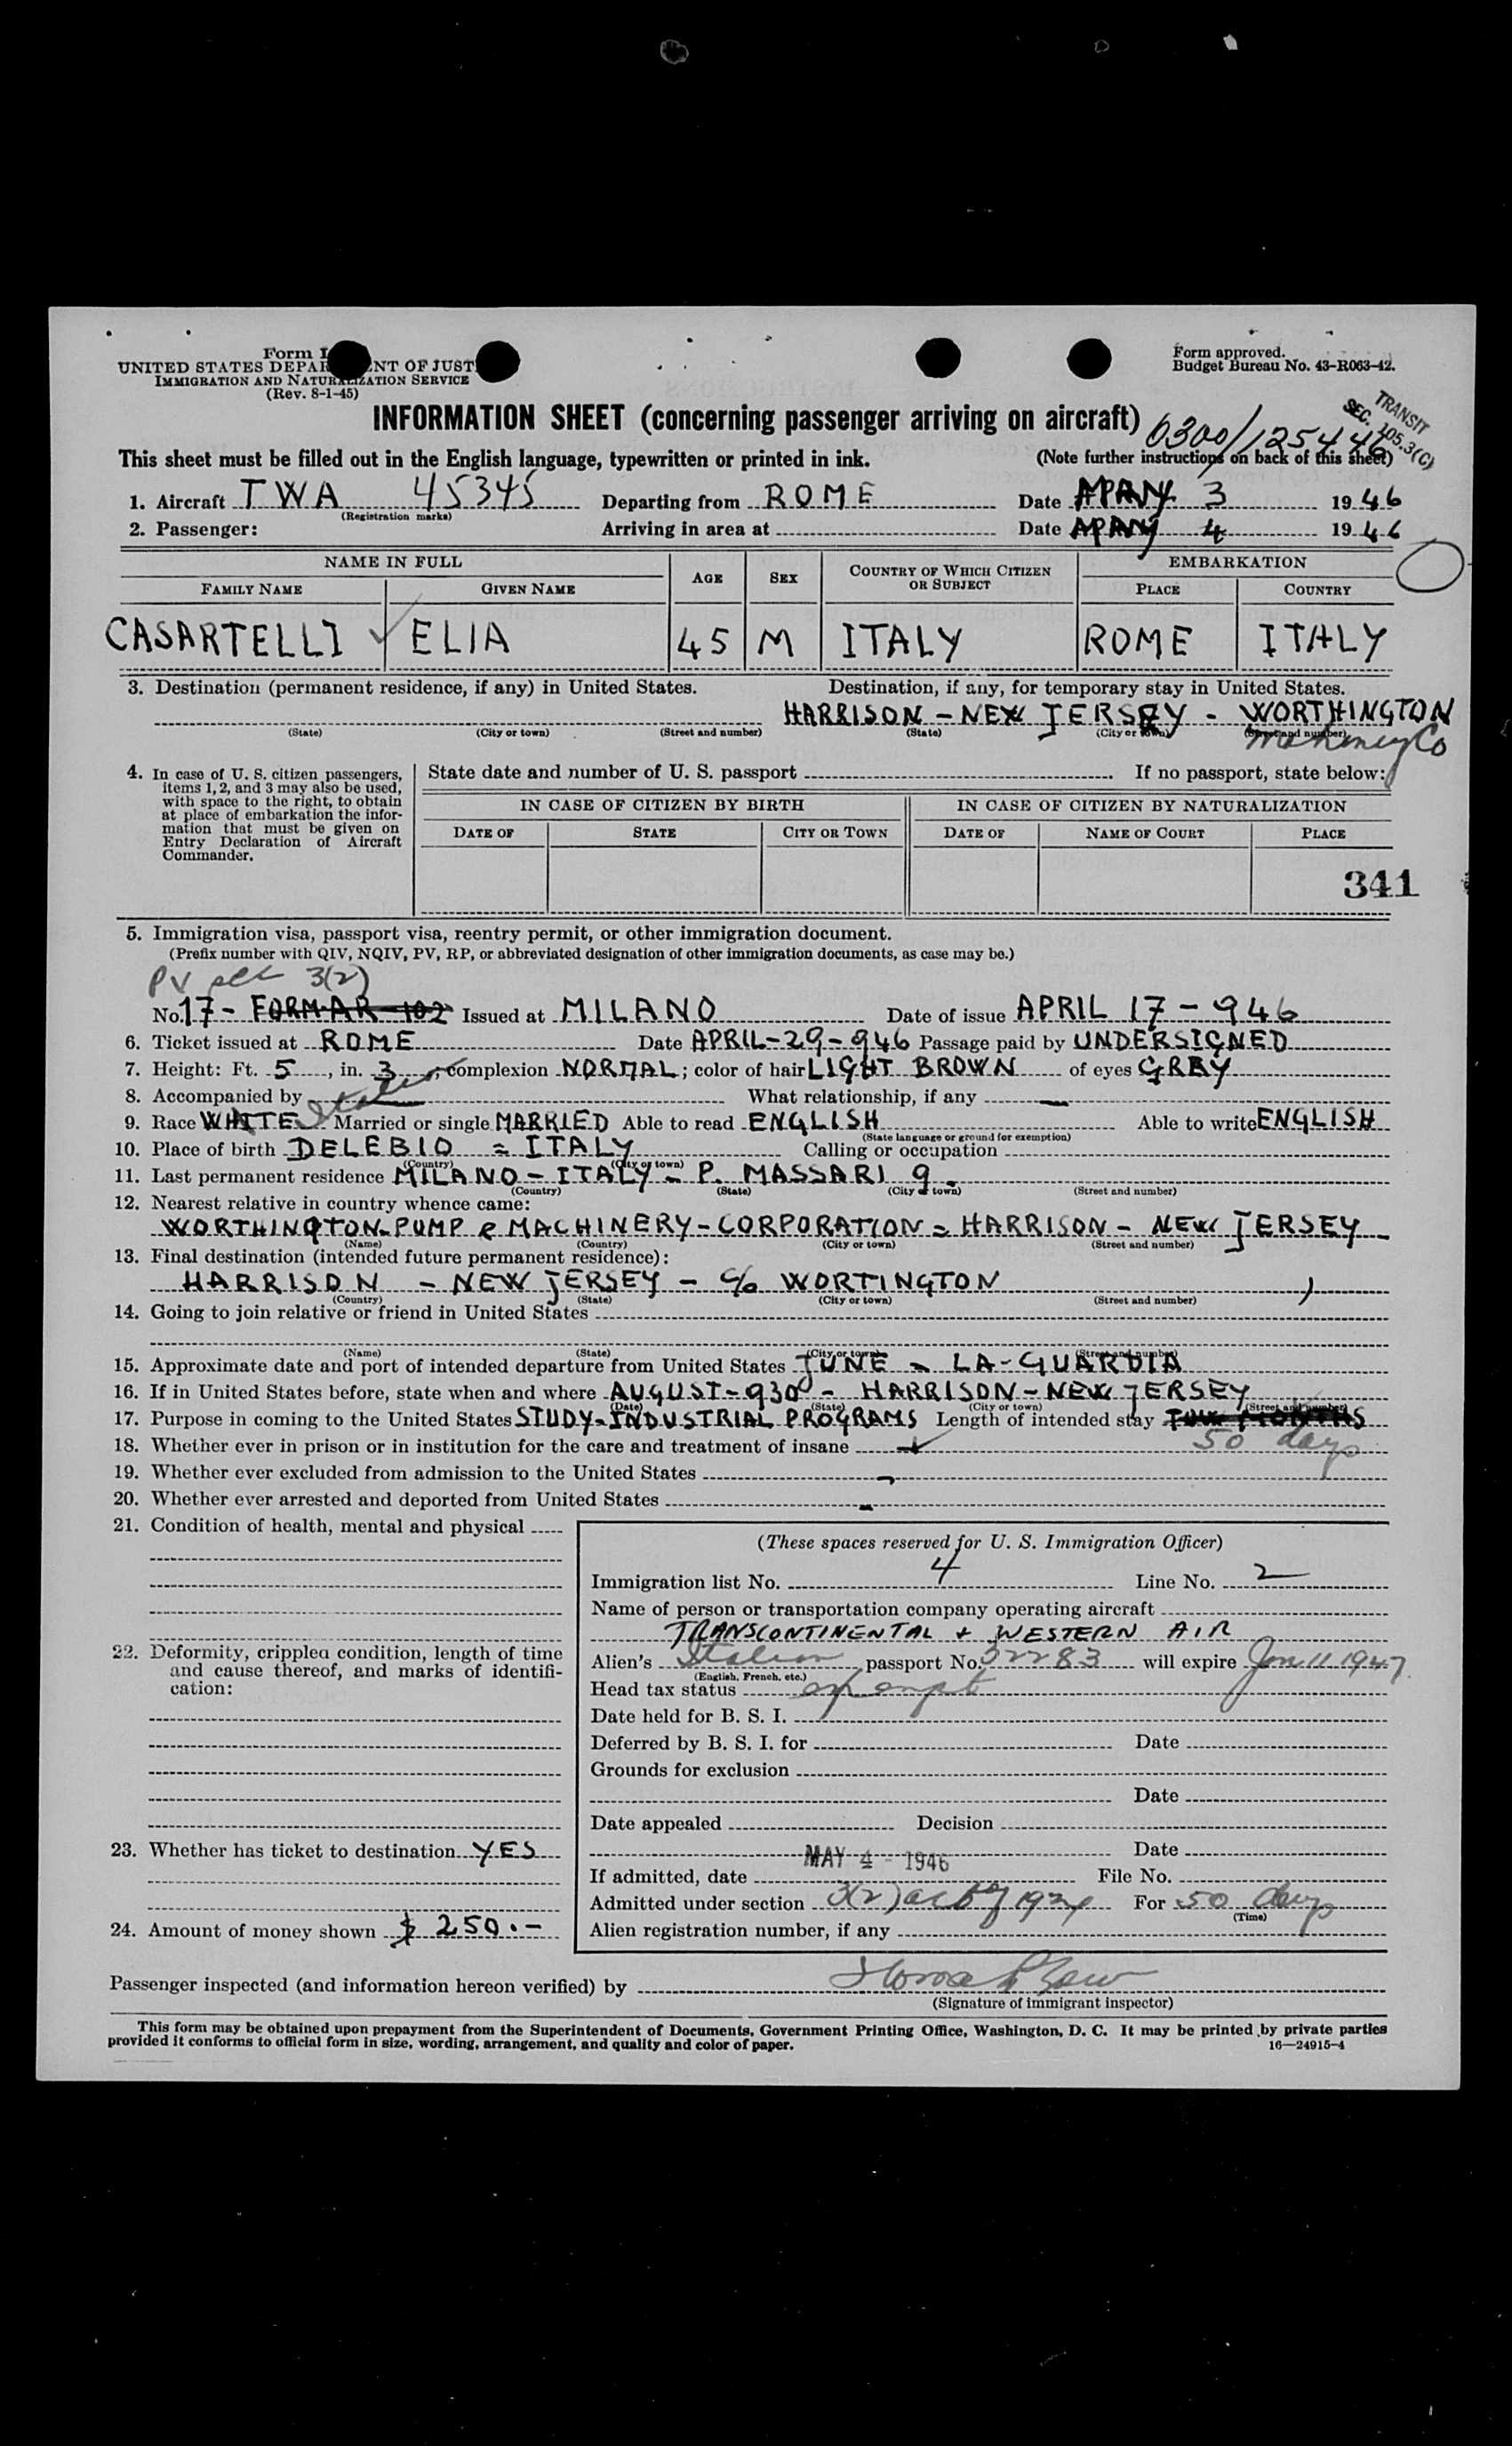 Form I
UNITED STATES DEPAR NT OF JUST
IMMIGRATION AND NATURALIZATION SERVICE
(Rev. 8-1-45)
Form approved.
Budget Bureau No. 43-R063-42.
TRANSIT
SEC. 105.3(C)
INFORMATION SHEET (concerning passenger arriving on aircraft)
0300/125446
This sheet must be filled out in the English language, typewritten or printed in ink. (Note further instructions on back of this sheet)
1. Aircraft TWA 45345 Departing from ROME Date MAY 3 1946
(Registration marks)
2. Passenger: Arriving in area at Date MAY 4 1946
NAME IN FULL AGE SEX COUNTRY OF WHICH CITIZEN OR SUBJECT EMBARKATION
FAMILY NAME GIVEN NAME PLACE COUNTRY
CASARTELLI ELIA 45 M ITALY ROME ITALY
3. Destination (permanent residence, if any) in United States. Destination, if any, for temporary stay in United States.
HARRISON - NEW JERSEY - WORTHINGTON
(State) (City or town) (Street and number) (State) (City or town) (Street and number)
Co
4. In case of U. S. citizen passengers, items 1, 2, and 3 may also be used, with space to the right, to obtain at place of embarkation the information that must be given on Entry Declaration of Aircraft Commander.
State date and number of U. S. passport If no passport, state below:
IN CASE OF CITIZEN BY BIRTH IN CASE OF CITIZEN BY NATURALIZATION
DATE OF STATE CITY OR TOWN DATE OF NAME OF COURT PLACE
341
5. Immigration visa, passport visa, reentry permit, or other immigration document.
(Prefix number with QIV, NQIV, PV, RP, or abbreviated designation of other immigration documents, as case may be.)
PV sec 3(2)
No. 17 - FORMAR 102 Issued at MILANO Date of issue APRIL 17 - 946
6. Ticket issued at ROME Date APRIL-29-946 Passage paid by UNDERSIGNED
7. Height: Ft. 5, in. 3, complexion NORMAL; color of hair LIGHT BROWN of eyes GRAY
8. Accompanied by What relationship, if any —
9. Race WHITE Italian Married or single MARRIED Able to read ENGLISH Able to write ENGLISH
(State language or ground for exemption)
10. Place of birth DELEBIO = ITALY Calling or occupation
(Country) (City or town)
11. Last permanent residence MILANO - ITALY - P. MASSARI 9.
(Country) (State) (City or town) (Street and number)
12. Nearest relative in country whence came:
WORTHINGTON-PUMP e MACHINERY-CORPORATION = HARRISON - NEW JERSEY
(Name) (Country) (City or town) (Street and number)
13. Final destination (intended future permanent residence):
HARRISON - NEW JERSEY - c/o WORTINGTON
(Country) (State) (City or town) (Street and number)
14. Going to join relative or friend in United States
(Name) (State) (City or town) (Street and number)
15. Approximate date and port of intended departure from United States JUNE - LA-GUARDIA
16. If in United States before, state when and where AUGUST-930 - HARRISON - NEW JERSEY
(Date) (State) (City or town) (Street and number)
17. Purpose in coming to the United States STUDY-INDUSTRIAL PROGRAMS Length of intended stay TWO MONTHS
50 days
18. Whether ever in prison or in institution for the care and treatment of insane
19. Whether ever excluded from admission to the United States -
20. Whether ever arrested and deported from United States -
21. Condition of health, mental and physical
22. Deformity, crippled condition, length of time and cause thereof, and marks of identification:
23. Whether has ticket to destination YES
24. Amount of money shown $ 250.-
(These spaces reserved for U. S. Immigration Officer)
Immigration list No. 4 Line No. 2
Name of person or transportation company operating aircraft
TRANSCONTINENTAL + WESTERN AIR
Alien's Italian passport No. 32283 will expire Jan 11 1947.
(English, French, etc.)
Head tax status exempt
Date held for B. S. I.
Deferred by B. S. I. for Date
Grounds for exclusion
Date
Date appealed Decision
Date
If admitted, date MAY 4 - 1946 File No.
Admitted under section 3(2) act of 1924 For 50 days
(Time)
Alien registration number, if any
Passenger inspected (and information hereon verified) by
(Signature of immigrant inspector)
This form may be obtained upon prepayment from the Superintendent of Documents, Government Printing Office, Washington, D. C. It may be printed by private parties
provided it conforms to official form in size, wording, arrangement, and quality and color of paper. 16—24915-4